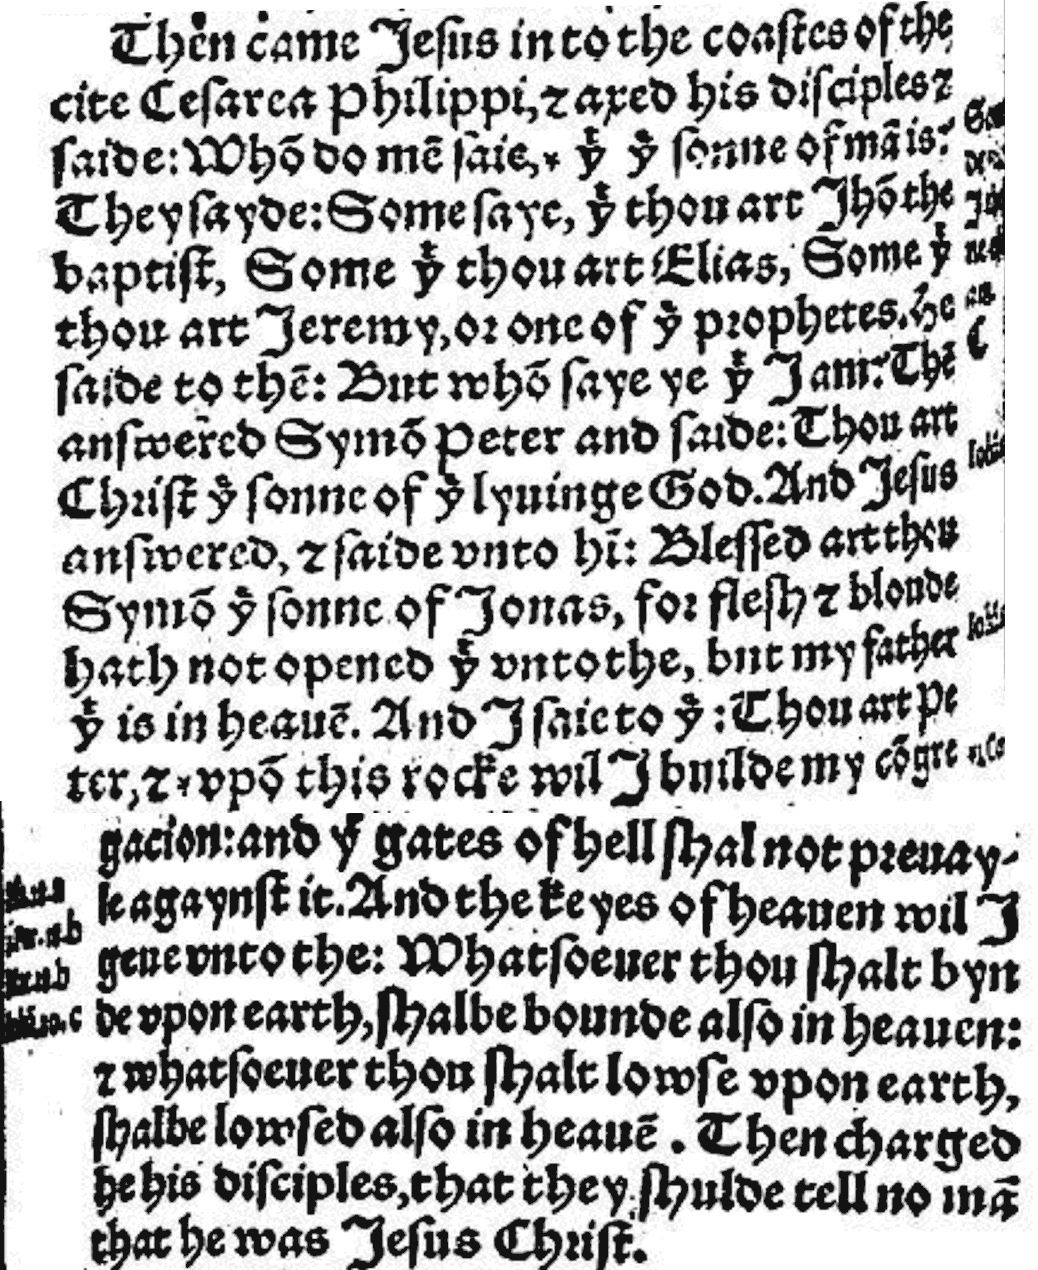 Then came Jeſus in to the coaſtes of the
cite Ceſarea Philippi, ⁊ axed his diſciples ⁊
ſaide: Whõ do mẽ ſaie, * yͭ yͤ ſonne of mã is?
They ſayde: Some ſaye, yͭ thou art Jhõ the
baptiſt, Some yͭ thou art Elias, Some yͭ
thou art Jeremy, oꝛ one of yͤ pꝛophetes. He
ſaide to thẽ: But whõ ſaye ye yͭ J am? Thẽ
anſwered Symõ Peter and ſaide: Thou art
Chꝛiſt yͤ ſonne of yͤ lyuinge God. And Jeſus
anſwered, ⁊ ſaide vnto hĩ: Bleſſed art thou
Symõ yͤ ſonne of Jonas, foꝛ fleſh ⁊ bloude
hath not opened yͭ vnto the, but my father
yͭ is in heauẽ. And J ſaie to yͤ: Thou art Pe
ter, ⁊ * vpõ this rocke wil J builde my cõgre
gacion: and yͤ gates of hell ſhal not pꝛeuay-
le agaynſt it. And the keyes of heauen wil J
geue vnto the: Whatſoeuer thou ſhalt byn
de vpon earth, ſhalbe bounde alſo in heauen:
⁊ whatſoeuer thou ſhalt lowſe vpon earth,
ſhalbe lowſed alſo in heauẽ. Then charged
he his diſciples, that they ſhulde tell no mã
that he was Jeſus Chꝛiſt.